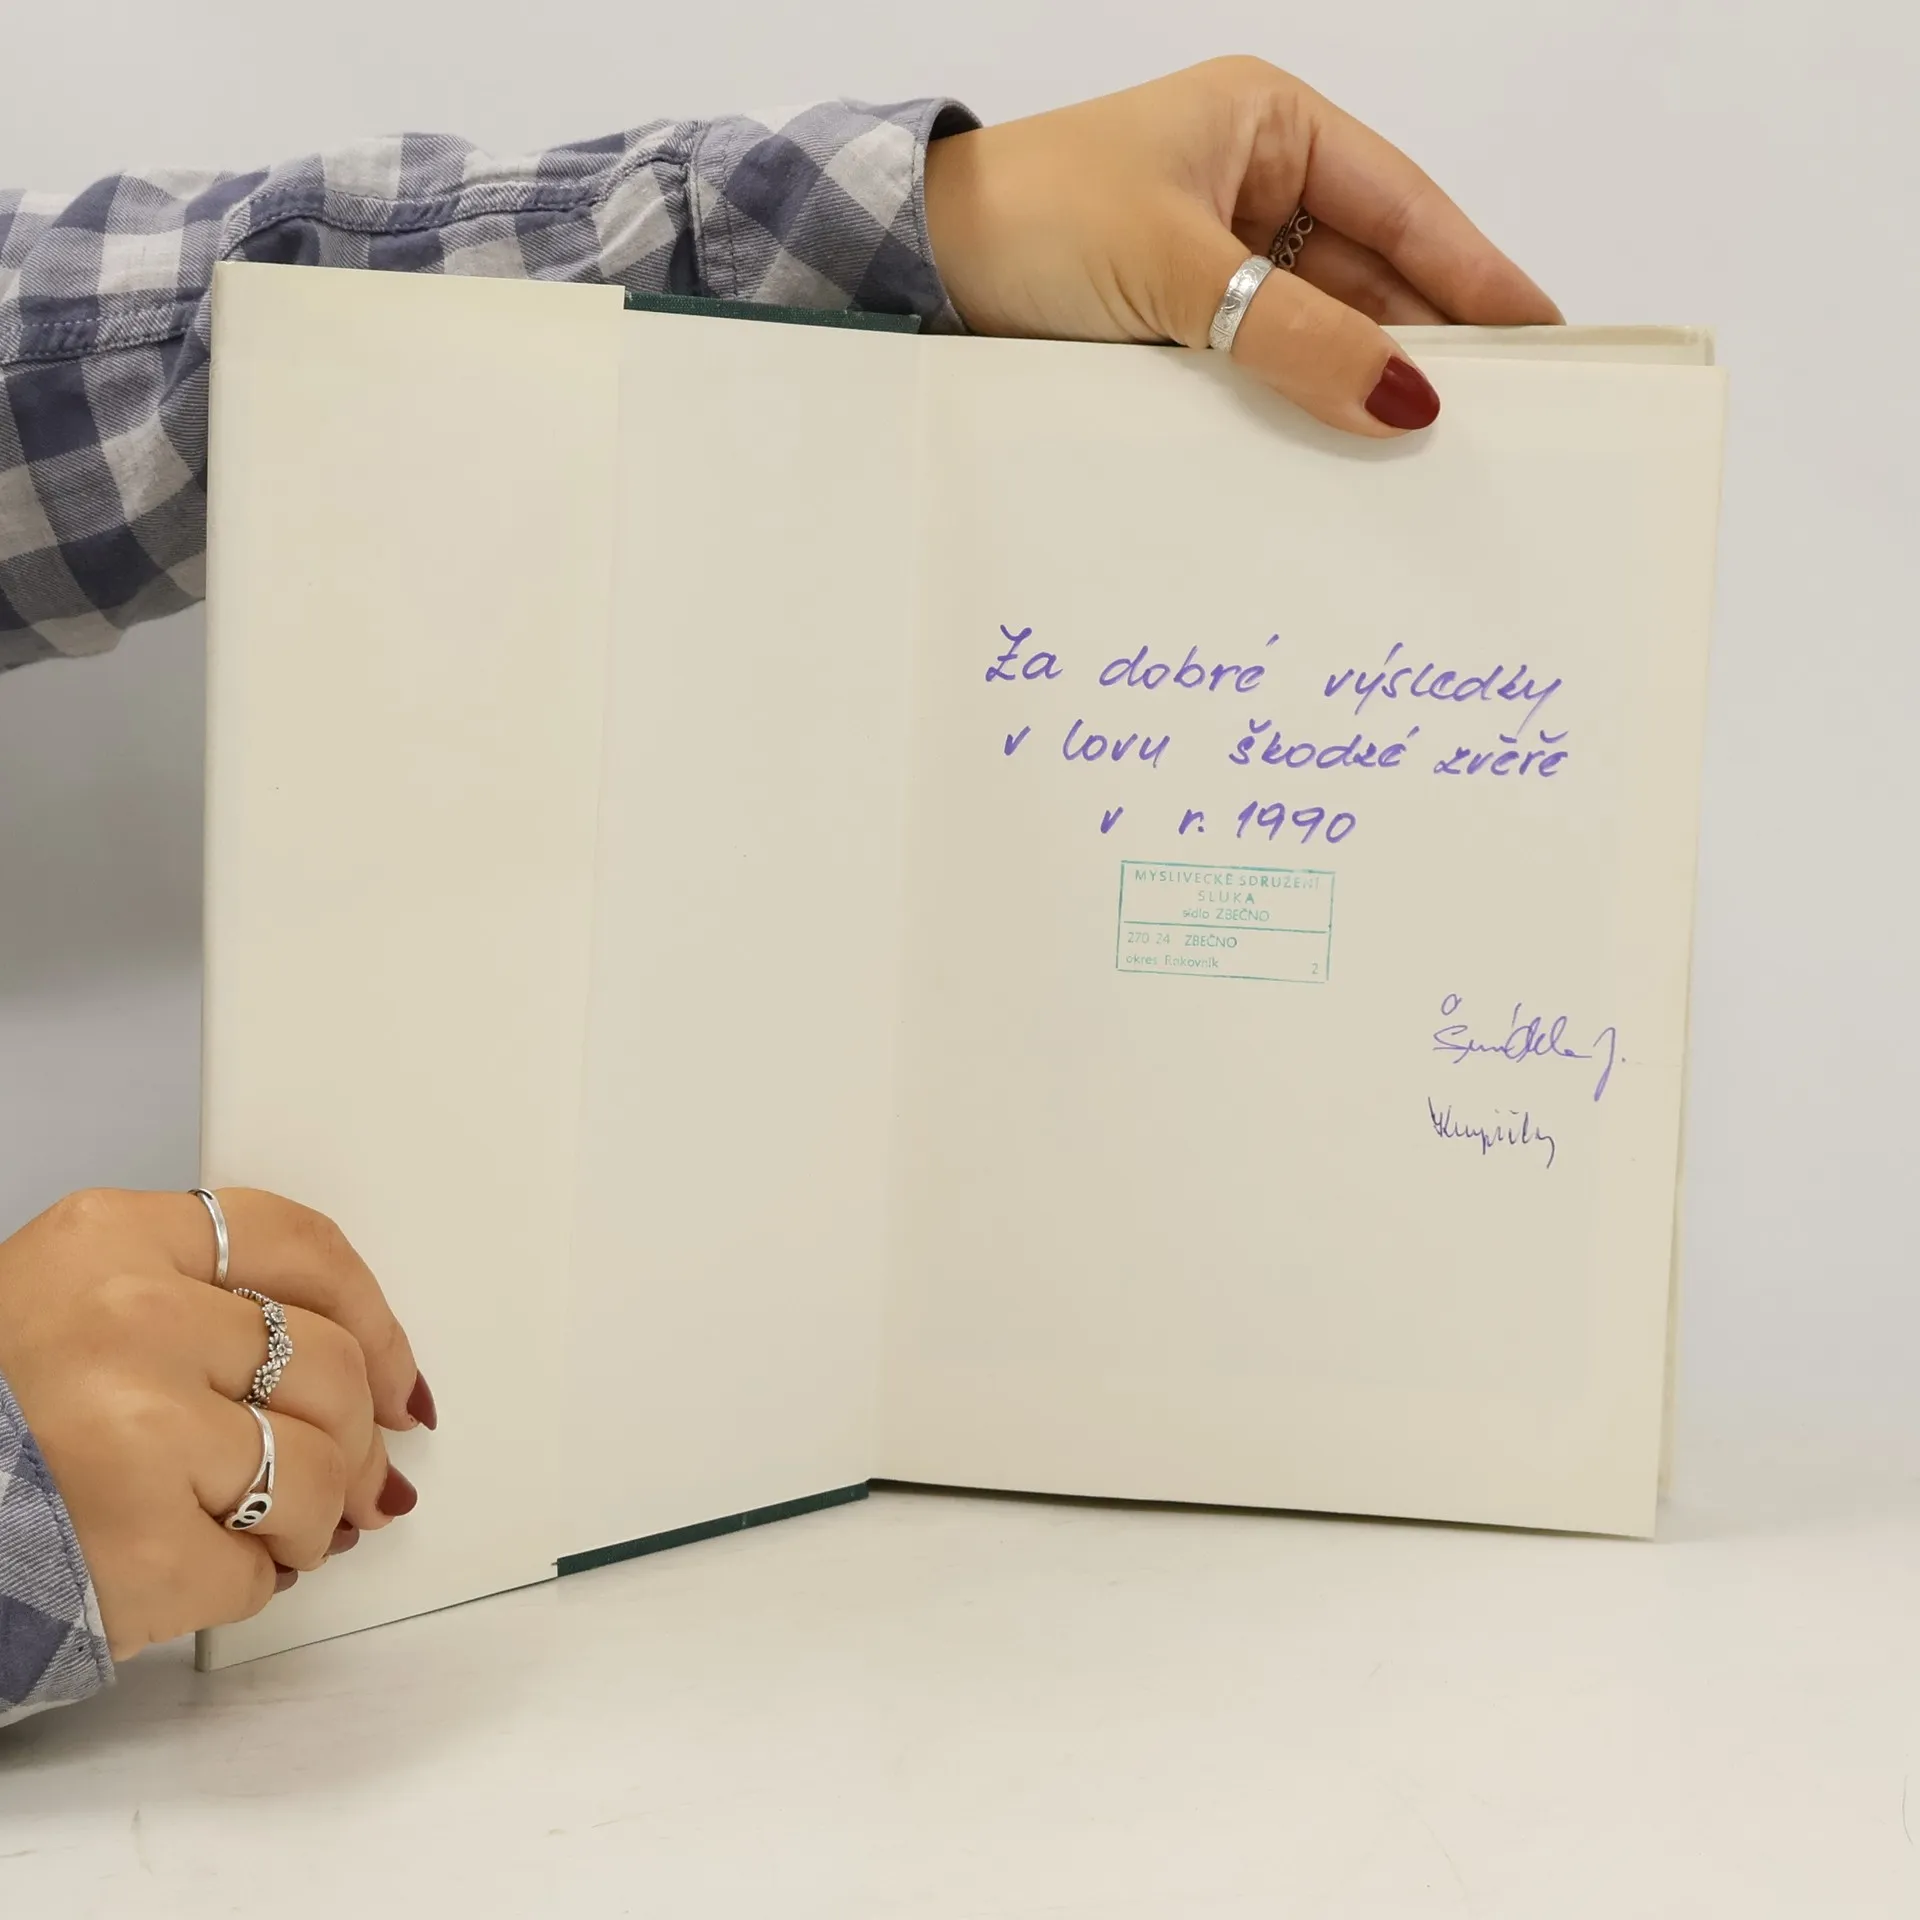 Za dobré výsledky
v lovu škodné zvěře
v r. 1990
MYSLIVECKÉ SDRUŽENÍ
SLUKA
sídlo ZBEČNO
270 24 ZBEČNO
okres Rakovník 2